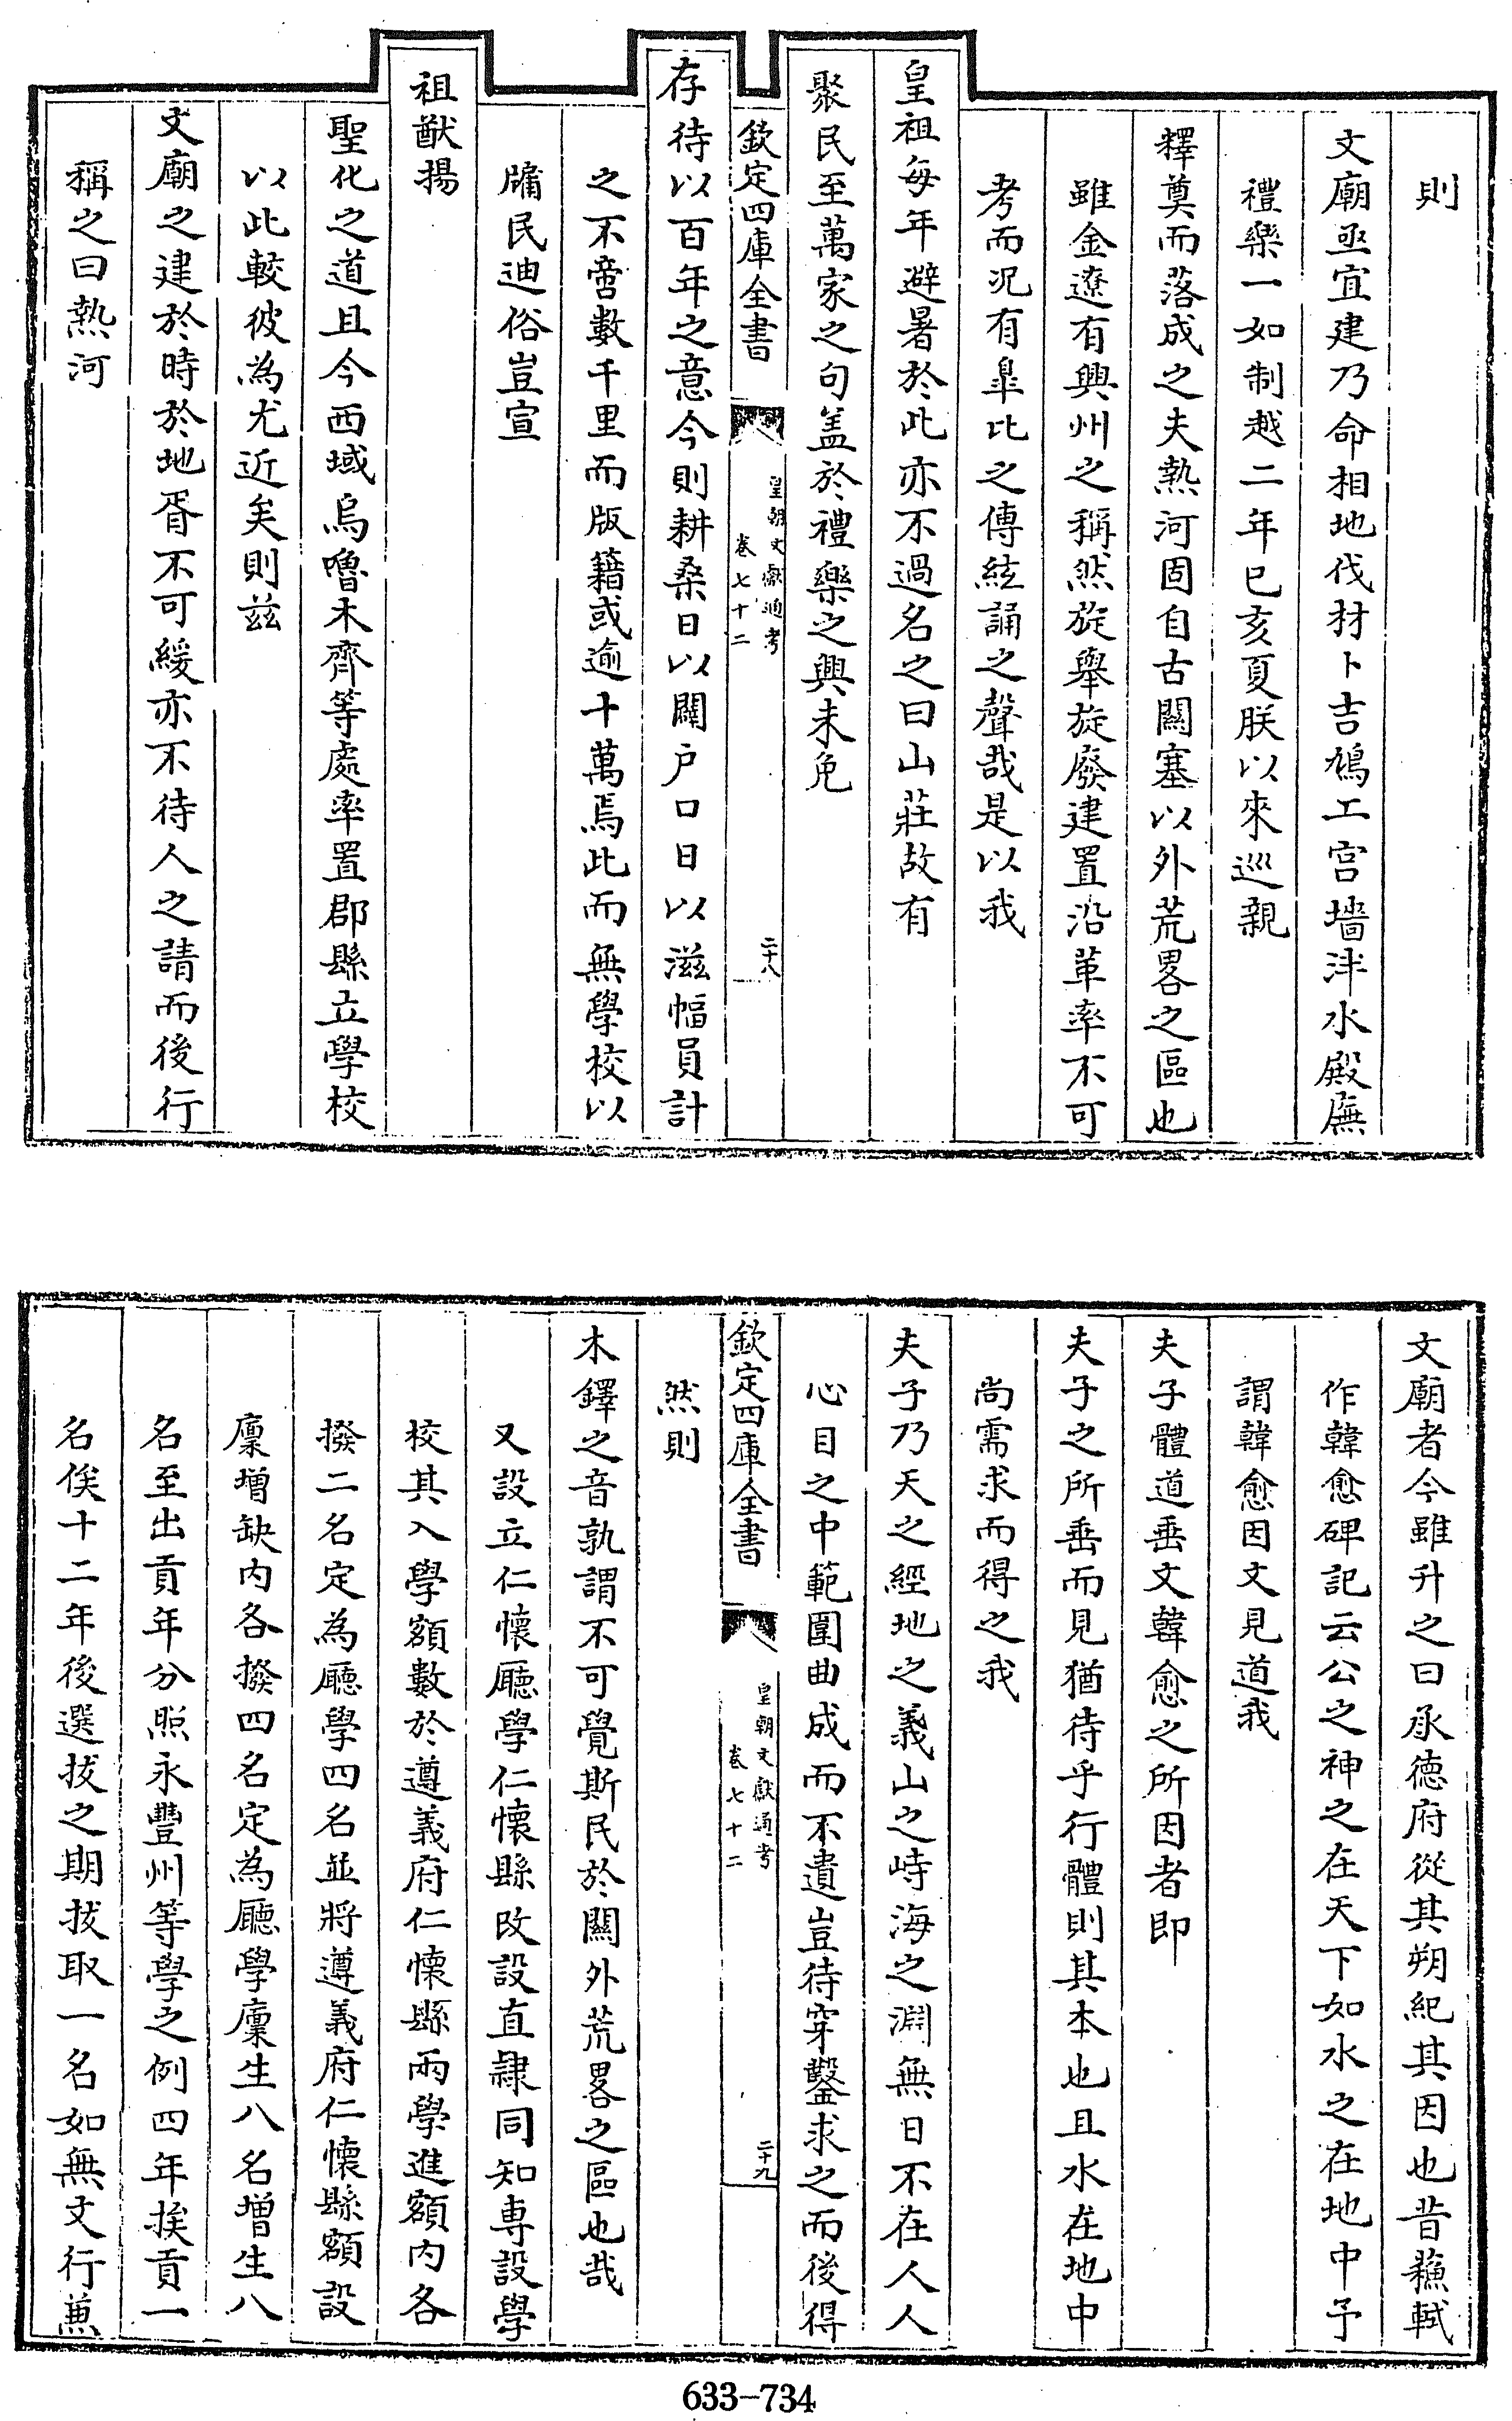 則
文廟亟宜建乃命相地伐材卜吉鳩工宫墻泮水殿廡
禮樂一如制越二年巳亥夏朕以來巡親
釋奠而落成之夫熱河固自古關塞以外荒畧之區也
雖金遼有興州之稱然旋舉旋廢建置沿革率不可
考而況有臯比之傳絃誦之聲哉是以我
皇祖每年避暑於此亦不過名之曰山莊故有
聚民至萬家之句盖於禮樂之興未免
欽定四庫全書
皇朝文獻通考
卷七十二
二十八
存待以百年之意今則耕桑日以闢户口日以滋幅員計
之不啻數千里而版籍或逾十萬焉此而無學校以
牖民迪俗豈宣
祖猷揚
聖化之道且今西域烏嚕木齊等處率置郡縣立學校
以此較彼為尤近矣則兹
文廟之建於時於地胥不可緩亦不待人之請而後行
稱之曰熱河
文廟者今雖升之曰承德府從其朔紀其因也昔蘓軾
作韓愈碑記云公之神之在天下如水之在地中予
謂韓愈因文見道我
夫子體道垂文韓愈之所因者即
夫子之所垂而見猶待乎行體則其本也且水在地中
尚需求而得之我
夫子乃天之經地之義山之峙海之淵無日不在人人
心目之中範圍曲成而不遺豈待穿鑿求之而後得
欽定四庫全書
皇朝文獻通考
卷七十二
二十九
然則
木鐸之音孰謂不可覺斯民於關外荒畧之區也哉
又設立仁懷廳學仁懷縣改設直隸同知専設學
校其入學額數於遵義府仁懷縣兩學進額内各
撥二名定為廳學四名並將遵義府仁懷縣額設
廩增缺内各撥四名定為廳學廩生八名增生八
名至出貢年分照永豐州等學之例四年挨貢一
名俟十二年後選拔之期拔取一名如無文行兼
633-734